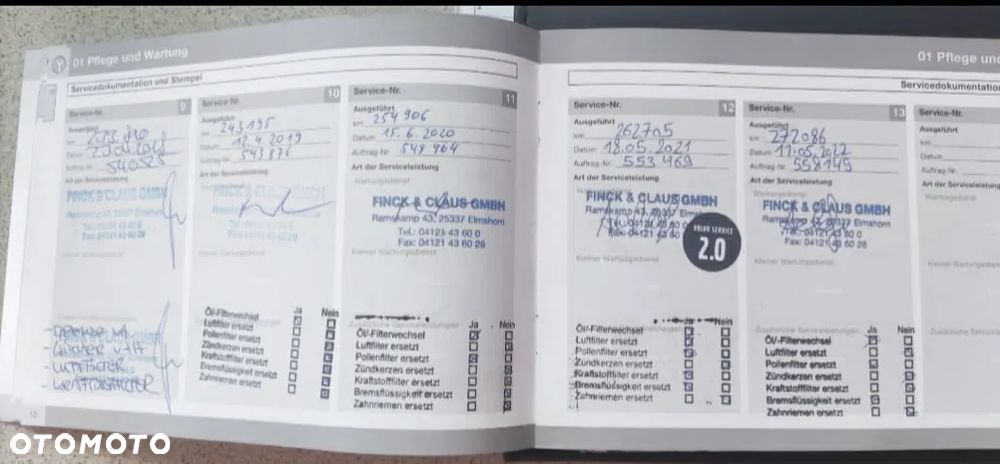 01 Pflege und Wartung
Servicedokumentation und Stempel
Service-Nr. 9
Ausgeführt
km
Datum
Auftrag-Nr. 540525
Art der Serviceleistung
FINCK & CLAUS GMBH
Kleiner Wartungsdienst
Service-Nr. 10
Ausgeführt
km 243195
Datum 12.4 2019
Auftrag-Nr. 543876
Art der Serviceleistung
FINCK & CLAUS GMBH
Ja Nein
Öl/-Filterwechsel
Luftfilter ersetzt
Pollenfilter ersetzt
Zündkerzen ersetzt
Kraftstofffilter ersetzt
Bremsflüssigkeit ersetzt
Zahnriemen ersetzt
12
Service-Nr. 11
Ausgeführt
km 254 906
Datum 15.6.2020
Auftrag-Nr. 549 464
Art der Serviceleistung
Wartungsdienst
FINCK & CLAUS GMBH
Ramskamp 43, 25337 Elmshorn
Tel.: 04121 43 60 0
Fax: 04121 43 60 28
Kleiner Wartungsdienst
Zusätzliche Serviceleistungen
Ja Nein
Öl/-Filterwechsel
Luftfilter ersetzt
Pollenfilter ersetzt
Zündkerzen ersetzt
Kraftstofffilter ersetzt
Bremsflüssigkeit ersetzt
Zahnriemen ersetzt
01 Pflege und
Servicedokumentation
Service-Nr. 12
Ausgeführt
km 262705
Datum: 18.05.2021
Auftrag-Nr. 553 469
Art der Serviceleistung
Wartungsdienst
FINCK & CLAUS GMBH
Ramskamp 43, 25337 Elms
VOLVO SERVICE
2.0
Kleiner Wartungsdienst
Öl/-Filterwechsel
Luftfilter ersetzt
Pollenfilter ersetzt
Zündkerzen ersetzt
Kraftstofffilter ersetzt
Bremsflüssigkeit ersetzt
Zahnriemen ersetzt
Service-Nr. 13
Ausgeführt
km 272086
Datum 11.05.2022
Auftrag-Nr. 558149
Art der Serviceleistung
Wartungsdienst
FINCK & CLAUS GMBH
Ramskamp 43, 25337 Elmshorn
Fax: 04121 43 60 28
Kleiner Wartungsdienst
Zusätzliche Serviceleistungen
Ja Nein
Öl/-Filterwechsel
Luftfilter ersetzt
Pollenfilter ersetzt
Zündkerzen ersetzt
Kraftstofffilter ersetzt
Bremsflüssigkeit ersetzt
Zahnriemen ersetzt
Service-Nr.
Ausgeführt
km
Datum
Auftrag-Nr.
Art der Serviceleistung
Wartungsdienst
Kleiner Wartungsdienst
Zusätzliche
OTOMOTO